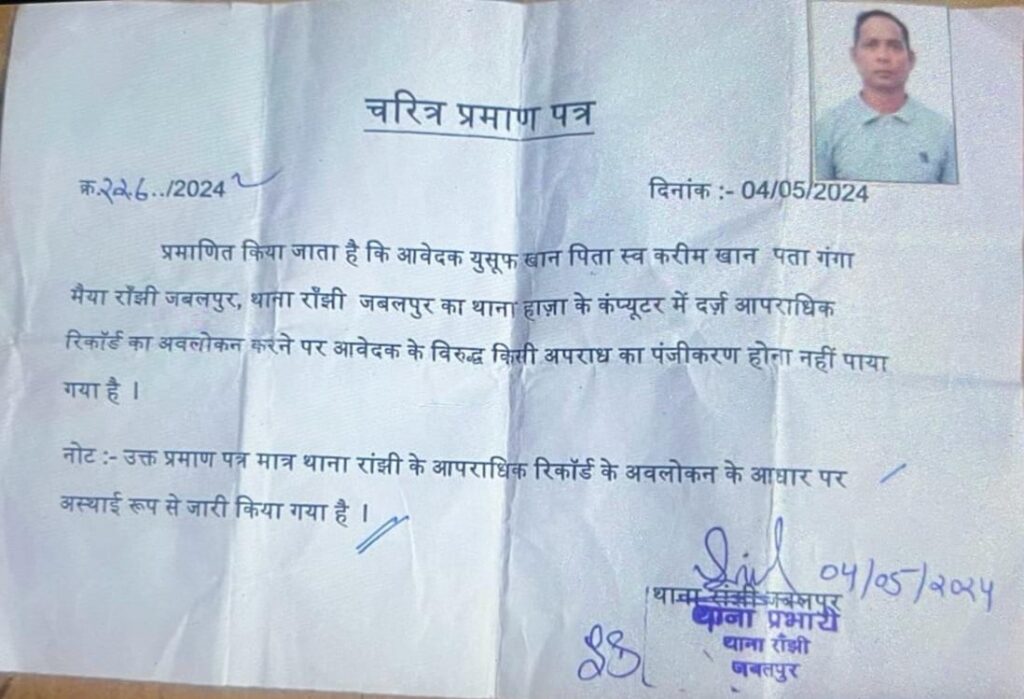 चरित्र प्रमाण पत्र
क्र.226../2024
दिनांक :- 04/05/2024
प्रमाणित किया जाता है कि आवेदक युसूफ खान पिता स्व करीम खान पता गंगा
मैया राँझी जबलपुर, थाना राँझी जबलपुर का थाना हाज़ा के कंप्यूटर में दर्ज़ आपराधिक
रिकॉर्ड का अवलोकन करने पर आवेदक के विरुद्ध किसी अपराध का पंजीकरण होना नहीं पाया
गया है ।
नोट :- उक्त प्रमाण पत्र मात्र थाना रांझी के आपराधिक रिकॉर्ड के अवलोकन के आधार पर
अस्थाई रूप से जारी किया गया है ।
04/05/2024
थाना रांझी जबलपुर
थाना प्रभारी
थाना राँझी
जबलपुर